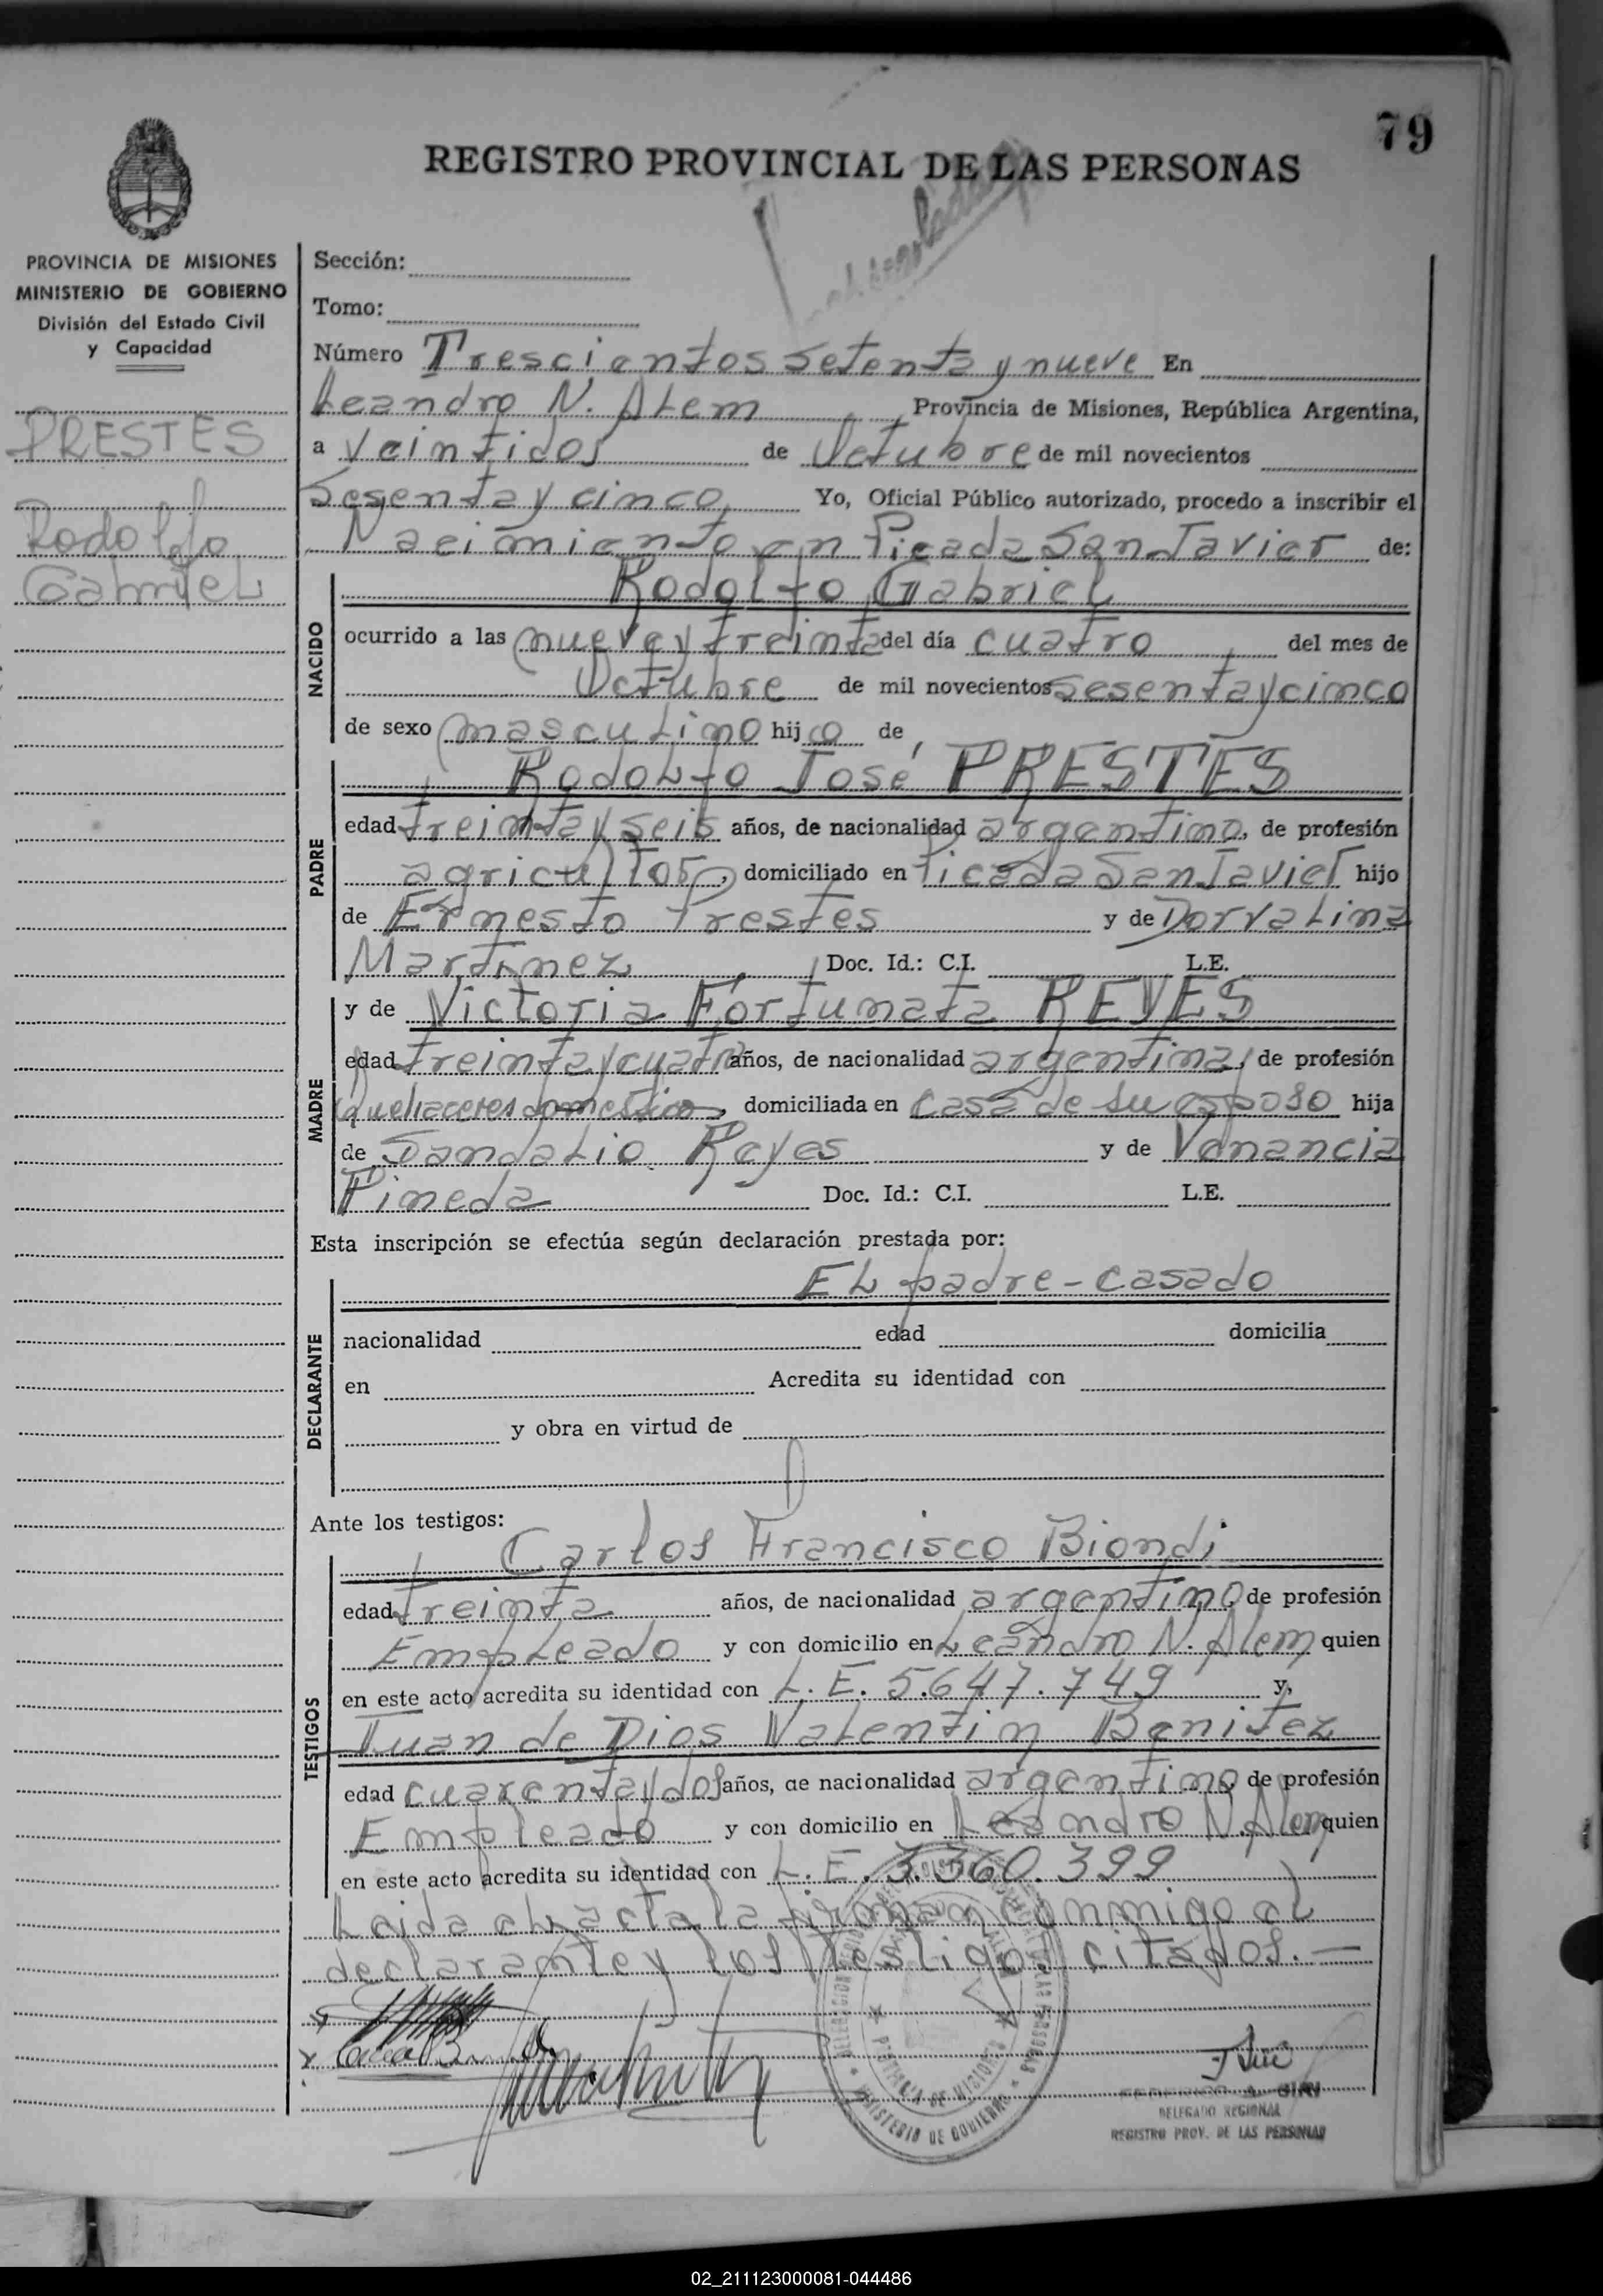 79
REGISTRO PROVINCIAL DE LAS PERSONAS
PROVINCIA DE MISIONES
MINISTERIO DE GOBIERNO
División del Estado Civil
y Capacidad
PRESTES
Rodolfo
Gabriel
Sección:
Tomo:
Número Trescientos setenta y nueve En
Leandro N. Alem, Provincia de Misiones, República Argentina,
a veintidos de Octubre de mil novecientos
sesenta y cinco Yo, Oficial Público autorizado, procedo a inscribir el
Nacimiento en Picada San Javier de:
NACIDO
Rodolfo Gabriel
ocurrido a las nueve y treinta del día cuatro del mes de
Octubre de mil novecientos sesenta y cinco
de sexo masculino hijo de
PADRE
Rodolfo José PRESTES
edad treinta y seis años, de nacionalidad argentino, de profesión
agricultor, domiciliado en Picada San Javier hijo
de Ernesto Prestes y de Dorvalina
Martinez Doc. Id.: C.I. L.E.
MADRE
y de Victoria Fortunata REYES
edad treinta y cuatro años, de nacionalidad argentina, de profesión
quehaceres domesticos, domiciliada en casa de su esposo hija
de Sandalio Reyes y de Venancia
Pineda Doc. Id.: C.I. L.E.
Esta inscripción se efectúa según declaración prestada por:
DECLARANTE
El padre - casado
nacionalidad edad domicilia
en Acredita su identidad con
y obra en virtud de
Ante los testigos:
TESTIGOS
Carlos Francisco Biondi
edad treinta años, de nacionalidad argentino de profesión
Empleado y con domicilio en Leandro N. Alem quien
en este acto acredita su identidad con L.E. 5.647.749 y,
Juan de Dios Valentin Benitez
edad cuarenta y dos años, de nacionalidad argentino de profesión
Empleado y con domicilio en Leandro N. Alem quien
en este acto acredita su identidad con L.E. 3.360.399
Leida el acta la firman conmigo el
declarante y los testigos citados.—
PROVINCIA DE MISIONES
MINISTERIO DE GOBIERNO
DELEGADO REGIONAL
REGISTRO PROV. DE LAS PERSONAS
02_211123000081-044486